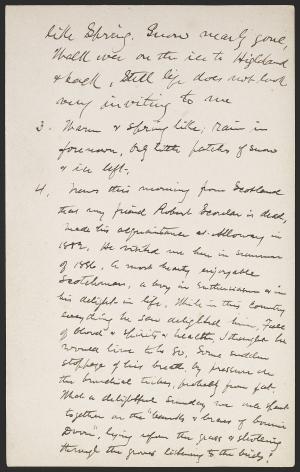 like Spring. Snow nearly gone,
Walk over on the ice to Highland
& back, Still life does not look
very inviting to me
3. Warm & spring like; rain in
forenoon, only little patches of snow
& ice left.
4. News this morning from Scotland
that my friend Robert Scoular is dead,
made his acquaintance at Alloway in
1882. He visited me here in summer
of 1886. A most hearty enjoyable
Scotchman, a boy in enthusiasm & in
his delight in life. While in this country
everything he saw delighted him. Full
of blood & spirits & health, I thought he
would live to 80. Some sudden
stoppage of his breath by pressure on
the bronchial tubes, probably from fat.
What a delightful Sunday we had
together on the "banks & braes of bonnie
Doon", lying upon the grass & strolling
through the groves listening to the birds!